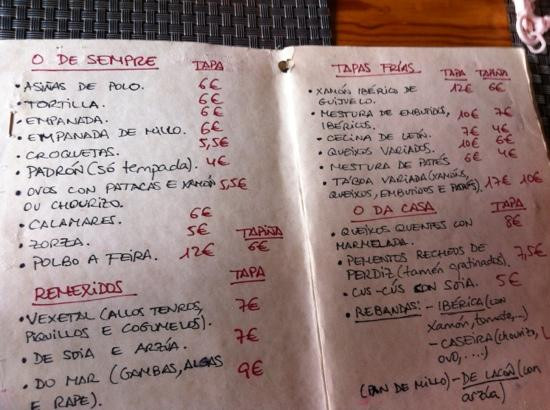 O DE SEMPRE TAPA
• ASIÑAS DE POLO. 6€
• TORTILLA. 6€
• EMPANADA. 6€
• EMPANADA DE MILLO. 6€
• CROQUETAS. 5,5€
• PADRÓN (SÓ TEMPADA). 4€
• OVOS CON PATACAS E XAMÓN 5,5€
OU CHOURIZO.
• CALAMARES. 6€
• ZORZA. 5€ TAPIÑA
• POLBO A FEIRA. 12€ 6€
REMEXIDOS TAPA
• VEXETAL (ALLOS TENROS, 7€
PIQUILLOS E COGUMELOS).
• DE SOIA E ARZÚA. 7€
• DO MAR (GAMBAS, ALGAS 9€
E RAPE).
TAPAS FRÍAS TAPA TAPIÑA
• XAMÓN IBÉRICO DE 12€ 6€
GUIJUELO.
• MESTURA DE EMBUTIDOS 10€ 7€
IBÉRICOS.
• CECINA DE LEÓN. 7€ 4€
• QUEIXOS VARIADOS. 10€ 6€
• MESTURA DE PATÉS 6€ 4€
• TÁBOA VARIADA (XAMÓNS, 17€ 10€
QUEIXOS, EMBUTIDOS E PATÉS).
O DA CASA TAPA
• QUEIXOS QUENTES CON 8€
MARMELADA.
• PEMENTOS RECHEOS DE 7,5€
PERDIZ (TAMÉN GRATINADOS).
• CUS-CÚS CON SOIA. 5€
• REBANDAS: - IBÉRICA (CON
XAMÓN, TOMATE,...)
- CASEIRA (CHOURIZO,
OVO, ....)
(PAN DE MILLO) - DE LACÓN (CON
ARZÚA)